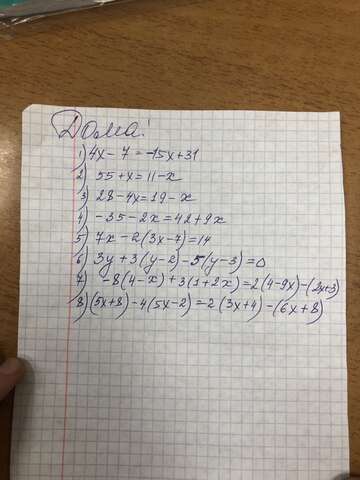 Дома:
1) 4x - 7 = -15x + 31
2) 55 + x = 11 - x
3) 28 - 4x = 19 - x
4) -35 - 2x = 42 + 9x
5) 7x - 2(3x - 7) = 14
6) 3y + 3(y - 2) - 5(y - 3) = 0
7) -8(4 - x) + 3(1 + 2x) = 2(4 - 9x) - (2x + 3)
8) (5x + 8) - 4(5x - 2) = 2(3x + 4) - (6x + 8)